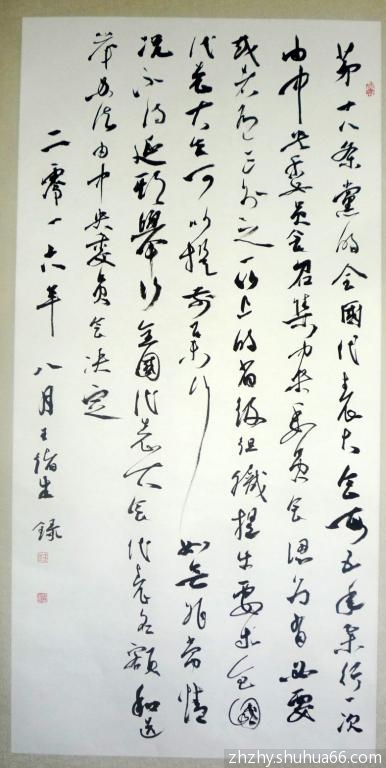 第十八条黨的全國代表大会每五年举行一次
由中央委員会召集中央委員会认为有必要
或者有三分之一以上的省级组織提出要求全國
代表大会可以提前举行如无非常情
况不得延期舉行全國代表大会代表名额和选
举办法由中央委員会决定
二零一六年八月王绪生録
zhzhy.shuhua66.com